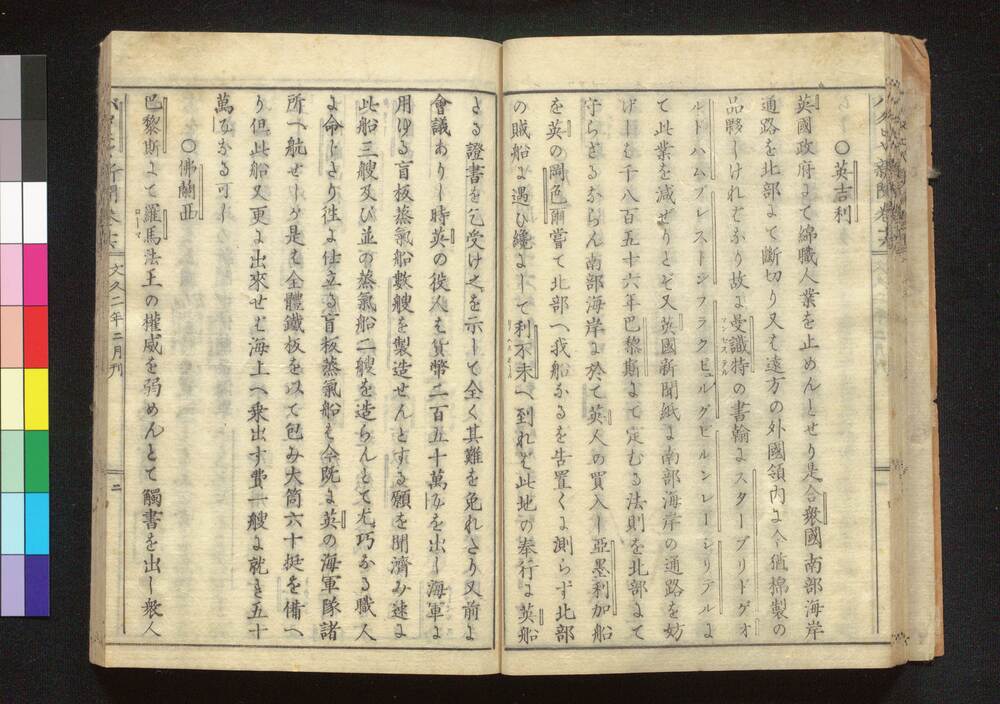 ○英吉利
英國政府よて綿職人業を止めんとせり是合衆國南部海岸
通路を北部よて斷切り又も遠方の外國領内よ今猶棉製の
品夥しけれバなり故よ曼識特の書翰よスターブリドゲオ
ルドハムプレストンフラクビュルグビルンレーシリテルよ
て此業を減ぜりとぞ又英國新聞紙よ南部海岸の通路を妨
げしも千八百五十六年巴黎斯よて定むる法則を北部よて
守らざるならん南部海岸よ於て英人の買入し亞墨利加船
を英の岡色爾嘗て北部へ我船なるを告置くよ測らず北部
の賊船よ遇ひ纔よして利不未へ到れバ此地の奉行よ英船
たる證書を乞受け之を示して全く其難を免れたり又前よ
會議ありし時英の役人も貨幣二百五十萬を出し海軍よ
用ゆる盲板蒸氣船數艘を製造せんとする願を聞濟み速よ
此船三艘及び並の蒸氣船二艘を造らんとて尤巧なる職人
よ命じたり徃よ仕立る盲板蒸氣船も今既よ英の海軍隊諸
所へ航せしが是も全體鐵板を以て包み大筒六十挺を備へ
り但此船又更よ出來せバ海上へ乗出す費一艘よ就き五十
萬なる可し
○佛蘭西
巴黎斯よて羅馬法王の權威を弱めんとて觸書を出し衆人
ローマ
文久二年二月刊
二